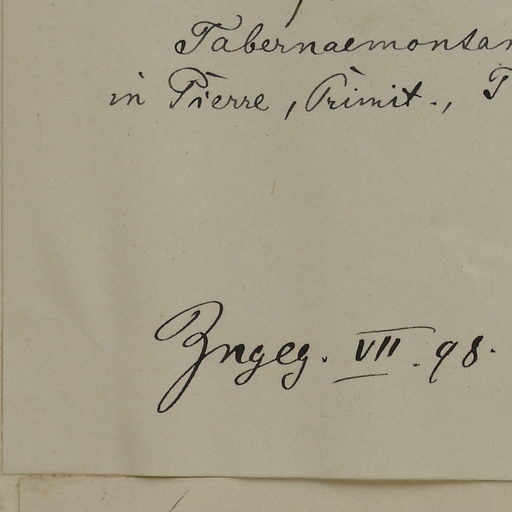 Tabernaemontan
in Pierre, Primit., T
Ingeg. VII. 98.